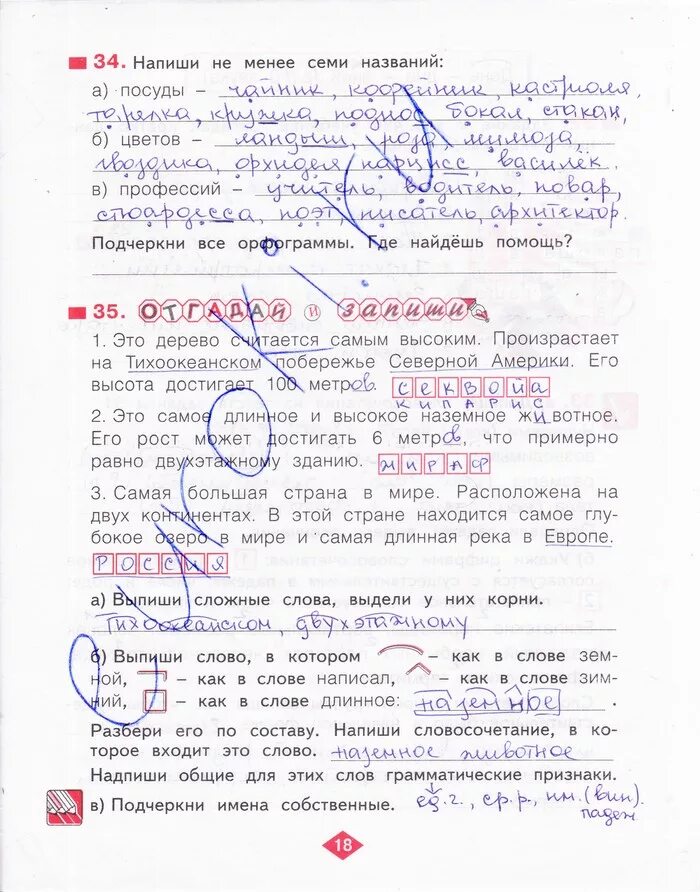 34. Напиши не менее семи названий:
а) посуды – чайник, кофейник, кастрюля,
тарелка, кружка, поднос, бокал, стакан,
б) цветов – ландыш, роза, мимоза,
гвоздика, орхидея, нарцисс, василёк.
в) профессий – учитель, водитель, повар,
стюардесса, поэт, писатель, архитектор.
Подчеркни все орфограммы. Где найдёшь помощь?
35. ОТГАДАЙ и запиши
1. Это дерево считается самым высоким. Произрастает
на Тихоокеанском побережье Северной Америки. Его
высота достигает 100 метров. СЕКВОЙА
КИПАРИС
2. Это самое длинное и высокое наземное животное.
Его рост может достигать 6 метров, что примерно
равно двухэтажному зданию. ЖИРАФ
3. Самая большая страна в мире. Расположена на
двух континентах. В этой стране находится самое глу-
бокое озеро в мире и самая длинная река в Европе.
РОССИЯ
а) Выпиши сложные слова, выдели у них корни.
Тихоокеанском, двухэтажному
б) Выпиши слово, в котором – как в слове зем-
ной, – как в слове написал, – как в слове зим-
ний, – как в слове длинное: наземное.
Разбери его по составу. Напиши словосочетание, в ко-
торое входит это слово. наземное животное
Надпиши общие для этих слов грамматические признаки.
в) Подчеркни имена собственные. ед.ч., ср.р., им.(вин).
падеж
18